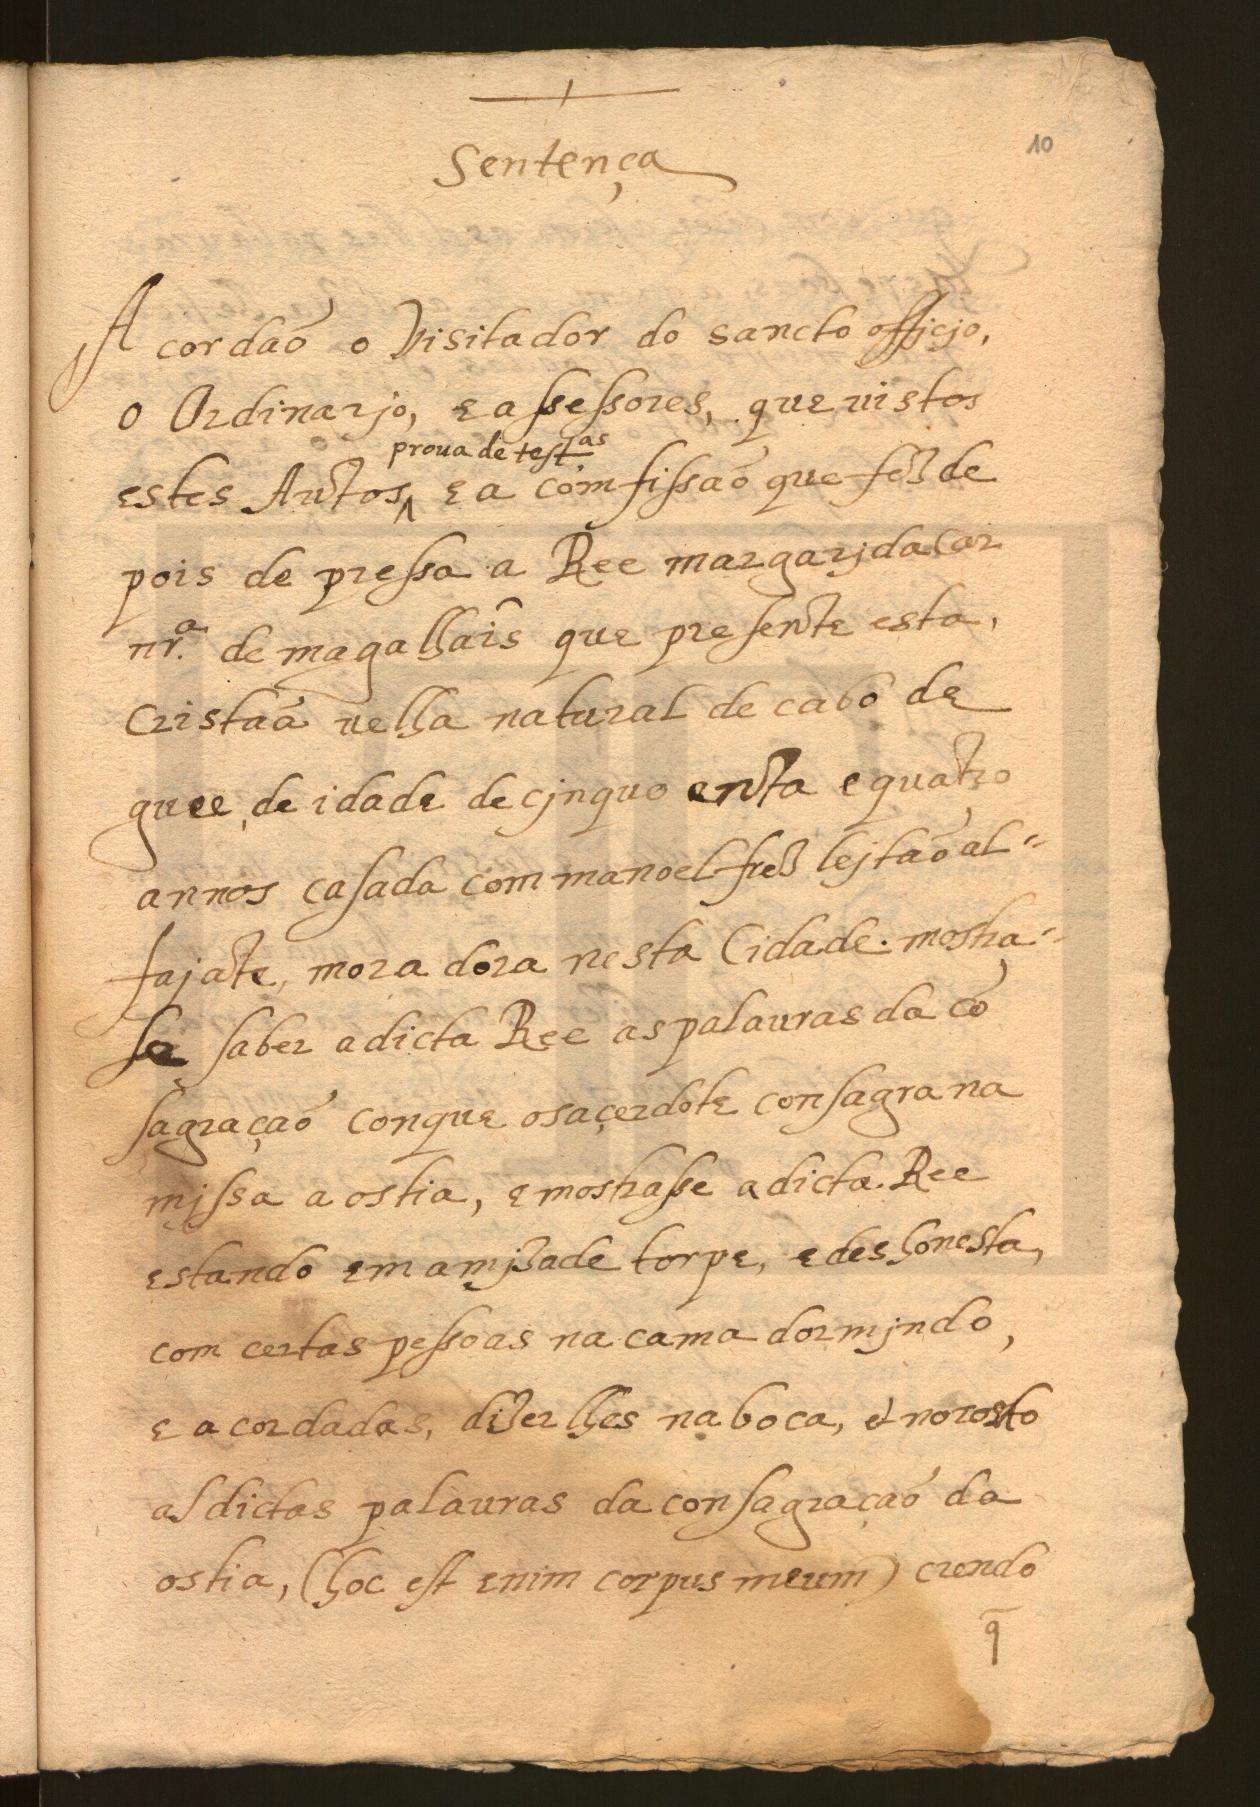 10
Sentença
Acordaõ o Visitador do sancto officjo,
o Ordinarjo, e assessores, que uistos
proua de test.as
estes Autos, e a comfissaõ que fez de
pois de pressa a Ree margarjda car
nr.a de magalhaîs que presente esta,
Cristaã uelha natural de cabo de
guee, de idade de cjnquo enta e quatro
annos casada com manoel frez lejtaõ al-
fajate, moradora nesta Cidade. mostra-
se saber a dicta Ree as palauras da cõ
sagraçaõ con que o saçerdote consagra na
mjssa a ostia, e mostrasse a dicta Ree
estando em amjzade torpe, e deshonesta,
com certas pessoas na cama dormjndo,
e acordadas, dizer lhes na boca, e no rosto
as dictas palauras da consagraçaõ da
ostia, (hoc est enim corpus meum) crendo
q̃